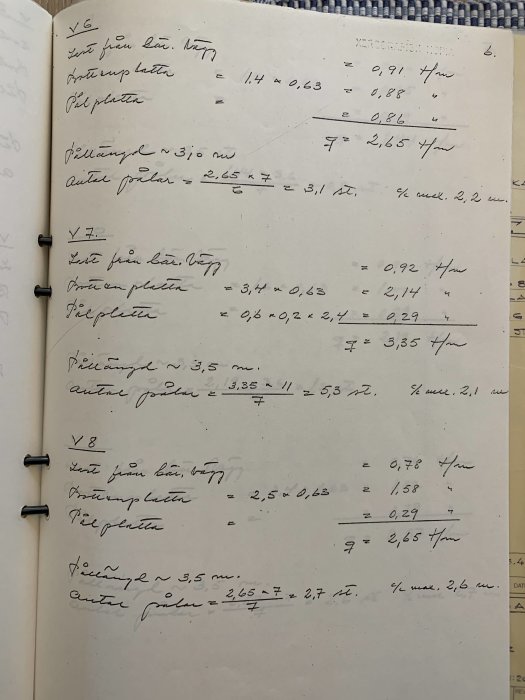 6.
V6
Last från bär. Vägg = 0,91 t/m
Bottenplatta = 1,4 × 0,63 = 0,88 "
Pålplatta = = 0,86 "
q = 2,65 t/m
Pållängd ~ 3,0 m
Antal pålar = 2,65 × 7 / 6 = 3,1 st. c/c max. 2,2 m.
V7.
Last från bär. Vägg = 0,92 t/m
Bottenplatta = 3,4 × 0,63 = 2,14 "
Pålplatta = 0,6 × 0,2 × 2,4 = 0,29 "
q = 3,35 t/m
Pållängd ~ 3,5 m.
Antal pålar = 3,35 × 11 / 7 = 5,3 st. c/c max. 2,1 m
V8
Last från bär. Vägg = 0,78 t/m
Bottenplatta = 2,5 × 0,63 = 1,58 "
Pålplatta = = 0,29 "
q = 2,65 t/m
Pållängd ~ 3,5 m.
Antal pålar = 2,65 × 7 / 7 = 2,7 st. c/c max. 2,6 m.